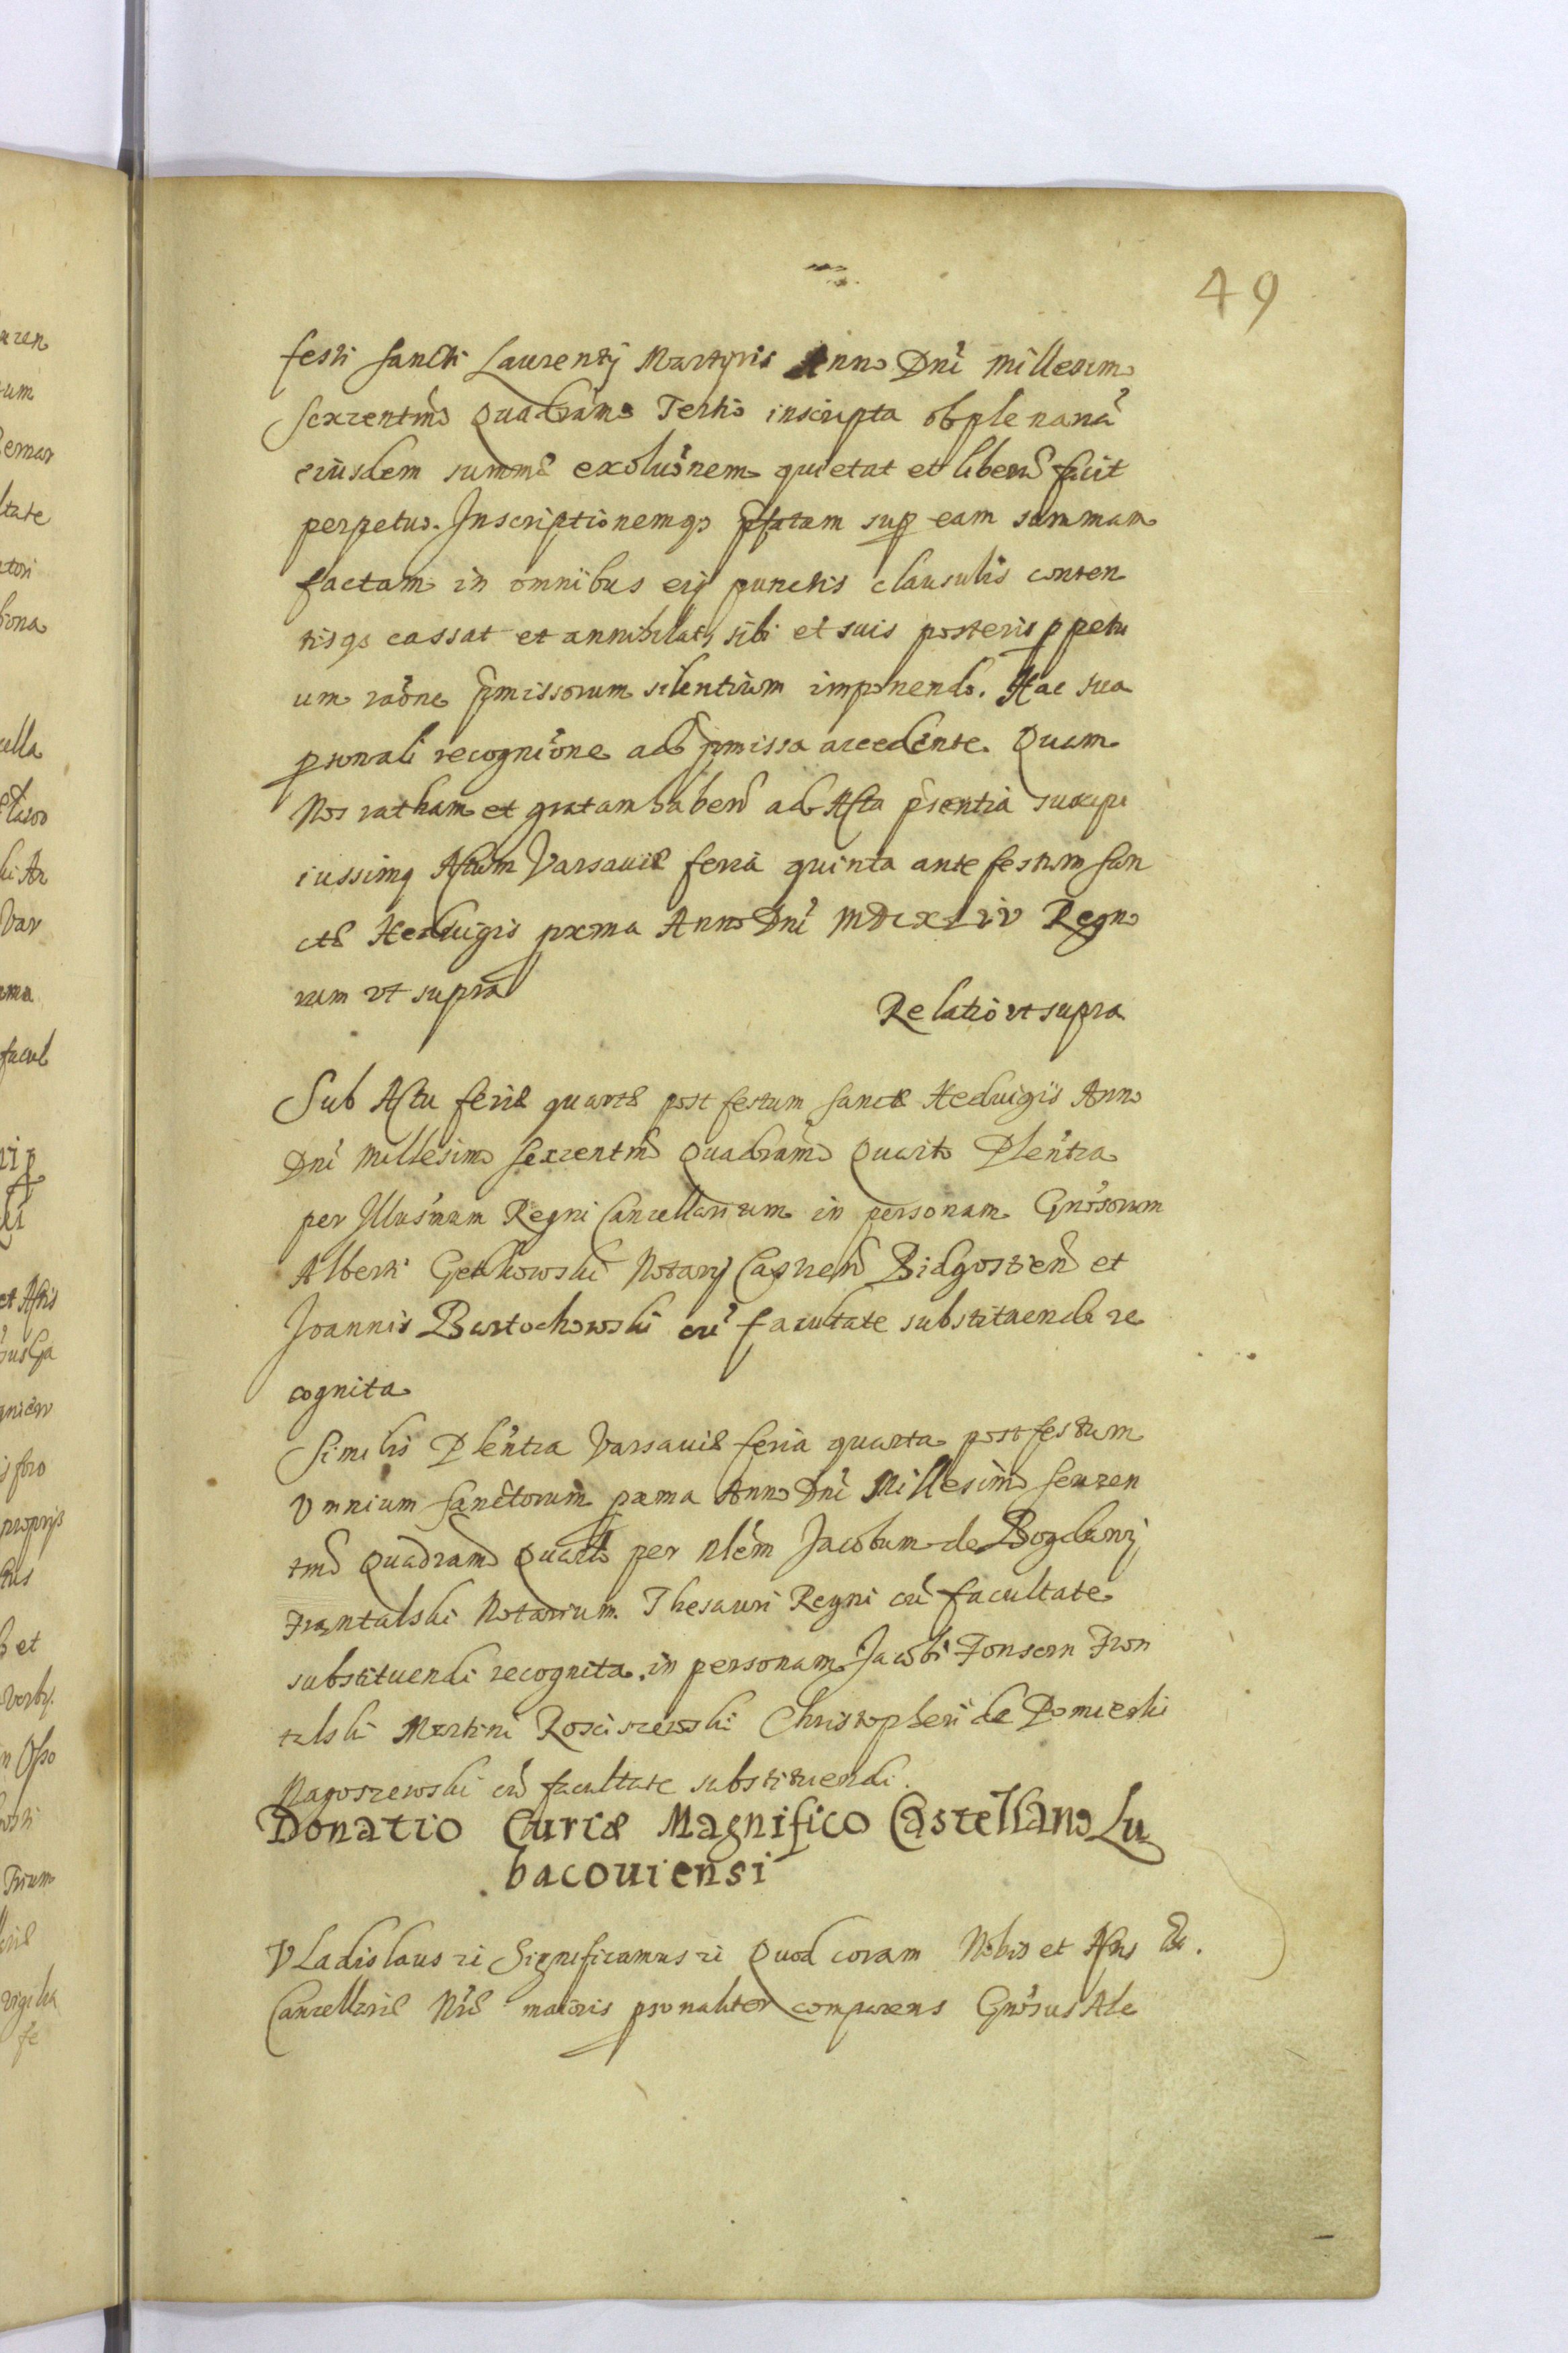 49
festi sancti Laurentij Martyris Anno Dni Millesimo
sexcentmo Quadramo Tertio inscripta ob plenariã
eiusdem summæ exoluõnem quietat et liberũ facit
perpetuo. Inscriptionemqȝ pfatam sup eam summam
factam in omnibus eiꝯ punctis clausulis conten
tisqȝ cassat et annihilat, sibi et suis posteris ppetu
um raõne pmissorum silentium imponendo. Hac sua
psonali recogniõne ad pmissa accedente. Quam
Nos ratham et gratam habend ad Acta psentia suscipi
iussimꝯ Actum Varsauiæ feria quinta ante festum san
ctæ Heduigis pxma Anno Dni MDCXLIV Regno
rum vt supra
Relatio vt supra
Sub Actu feriæ quartæ post festum sanctæ Heduigis Anno
Dni Millesimo sexcentmo Quadramo Quarto Plentia
per Illusmum Regni Cancellarium in personam Gnosorum
Alberti Notarij Castren Bidgostien et
Joannis Bartochowski cũ facultate substituendi re
cognita
Similis Plentia Varsauiæ feria quarta post festum
Omnium sanctorum pxma Anno Dni Millesimo sexcen
tmo Quadramo Quarto per Nlem Jacobum de Bogdanij
Notarium Thesauri Regni cũ facultate
substituendi recognita in personam Jacobi Fron
talski Martini Rosciszewski Christopheri de
Nagoszewski cũ facultate substituendi.
Donatio Curiæ Magnifico Castellano Lu
bacouiensi
Vladislaus ꝛc Significamus ꝛc Quod coram Nobis et Actis
Cancellariæ Nræ maioris psonaliter comparens Gnosus Ale